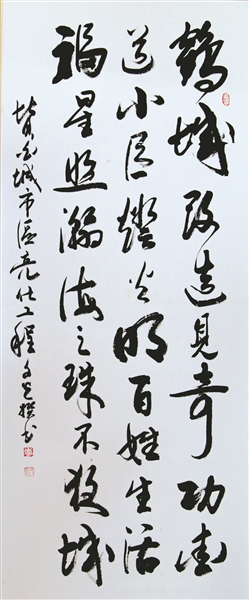 鶴城改造見奇功街
道小區燈火明百姓生活
福星照瀚海之珠不夜城
贊白城市區亮化工程 撰书